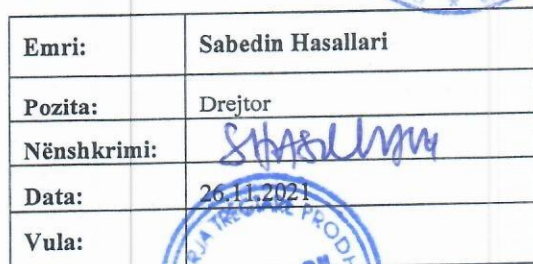 Emri: Sabedin Hasallari
Pozita: Drejtor
Nënshkrimi:
Data: 26.11.2021
Vula:
TREGTARE PROD